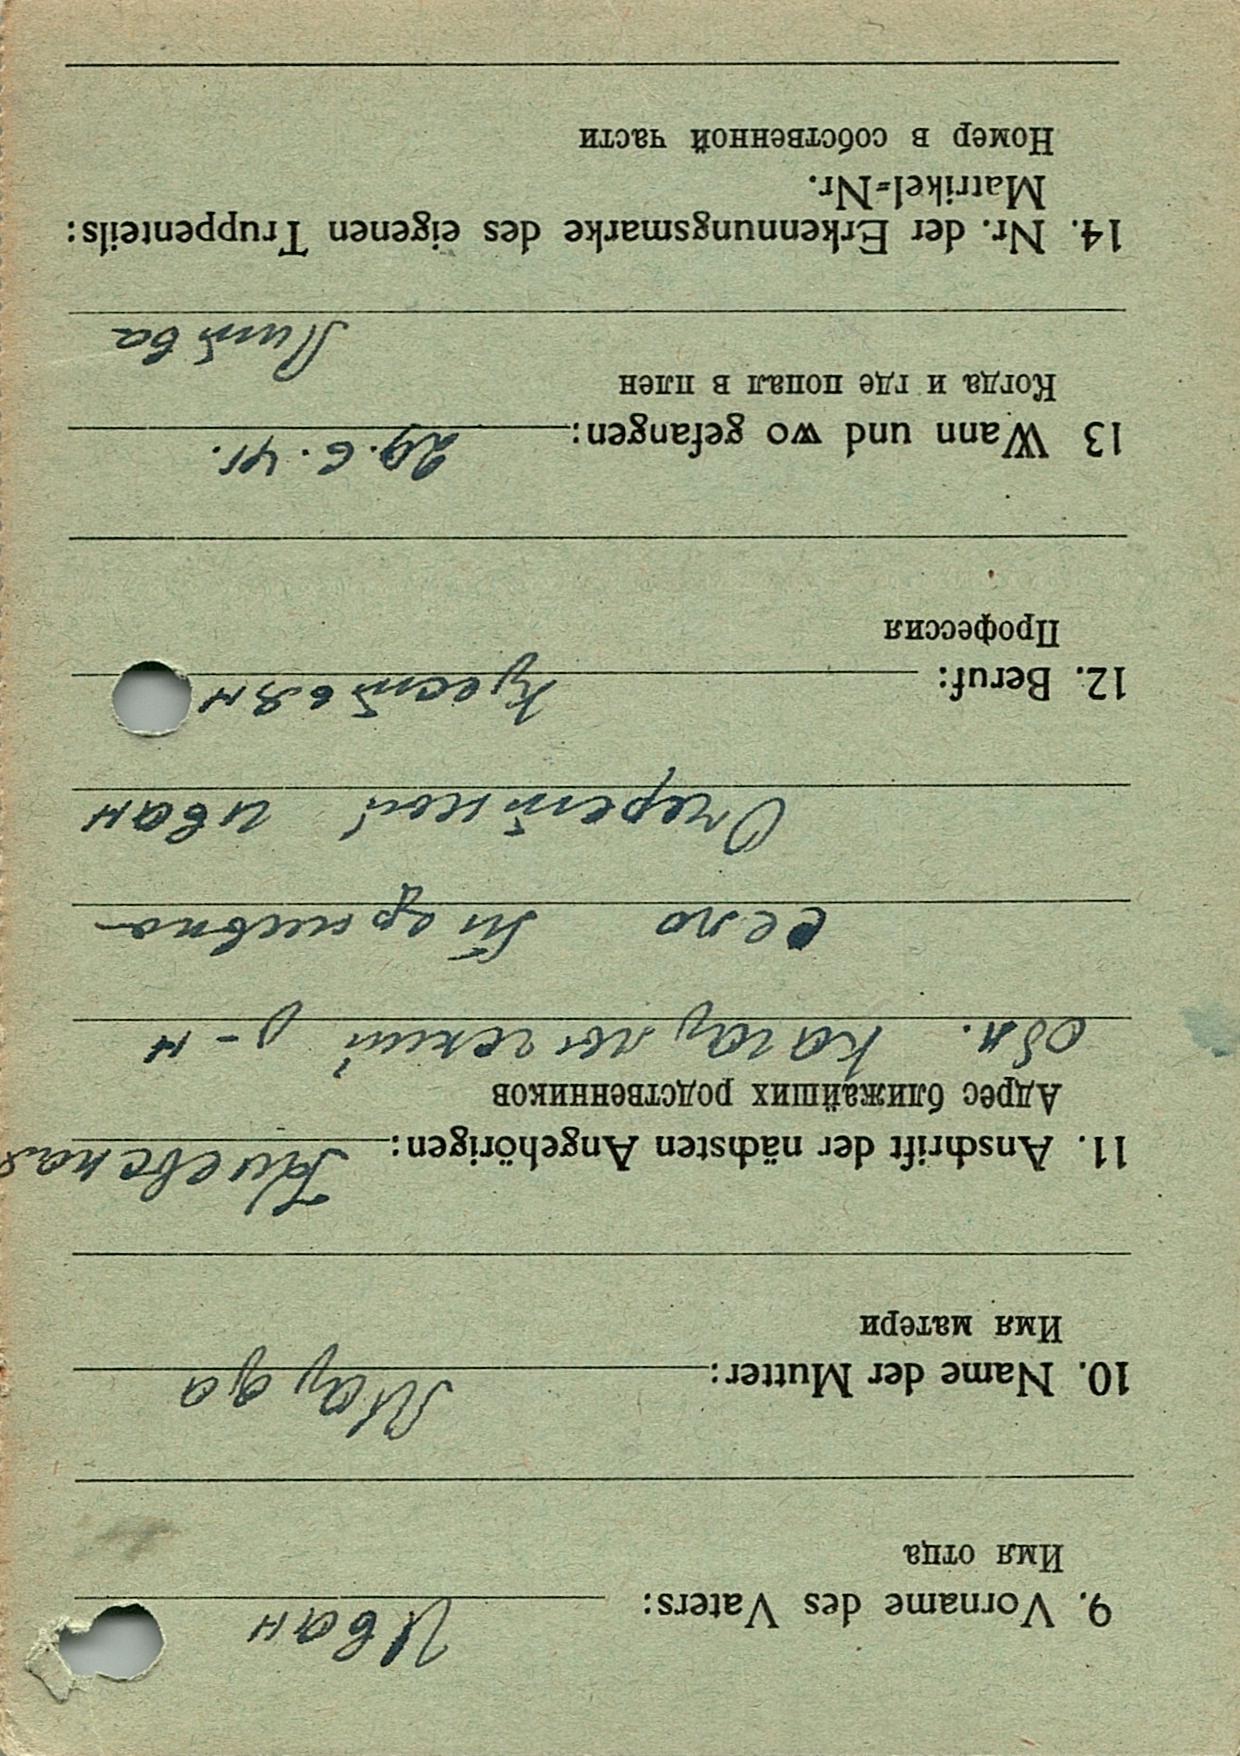 9. Vorname des Vaters: Иван
Имя отца
10. Name der Mutter: Мар да
Имя матери
11. Anschrift der nächsten Angehörigen: Киевская
Адрес ближайших родственников
обл. Кагарлыгский р-н
село
Очереткой иван
12. Beruf: Крестьян
Профессия
13 Wann und wo gefangen: 29.6.41.
Когда и где попал в плен
Литва
14. Nr. der Erkennungsmarke des eigenen Truppenteils:
Matrikel-Nr.
Номер в собственной части